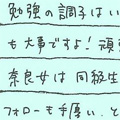 勉強の調子はい
も大事ですよ!頑
奈良女は同級生
フォローも手厚い、と